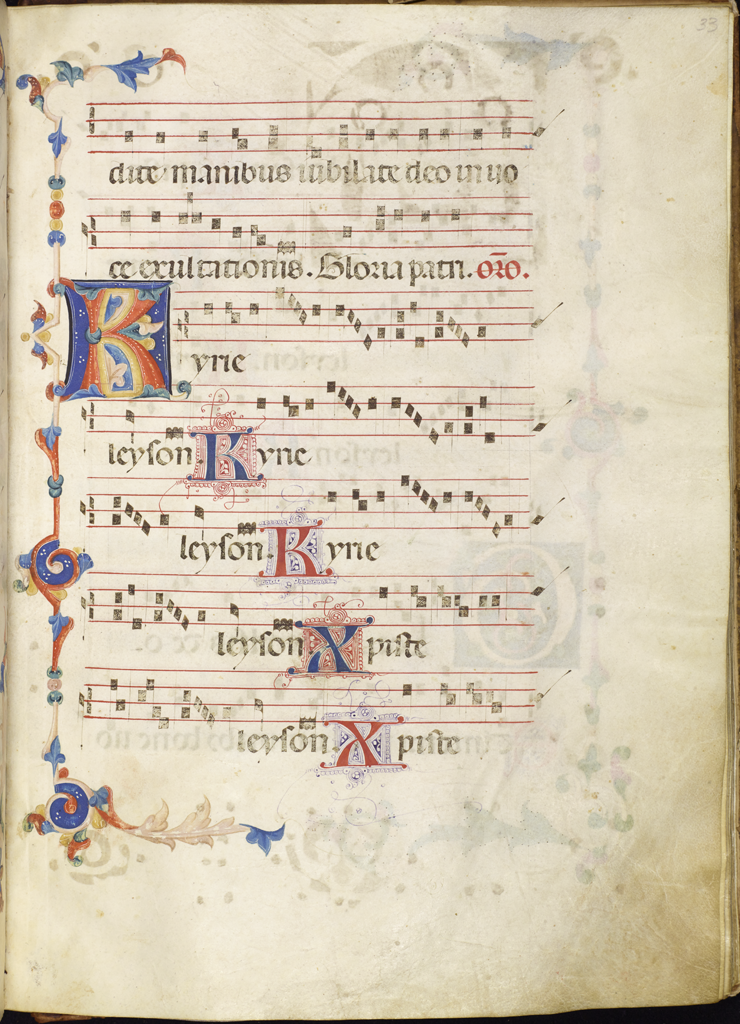 33
dite manibus iubilate deo in uo
ce exultationis. Gloria patri. oro.
Kyrie
leyson. Kyrie
leyson. Kyrie
leyson. Xpiste
leyson. Xpiste